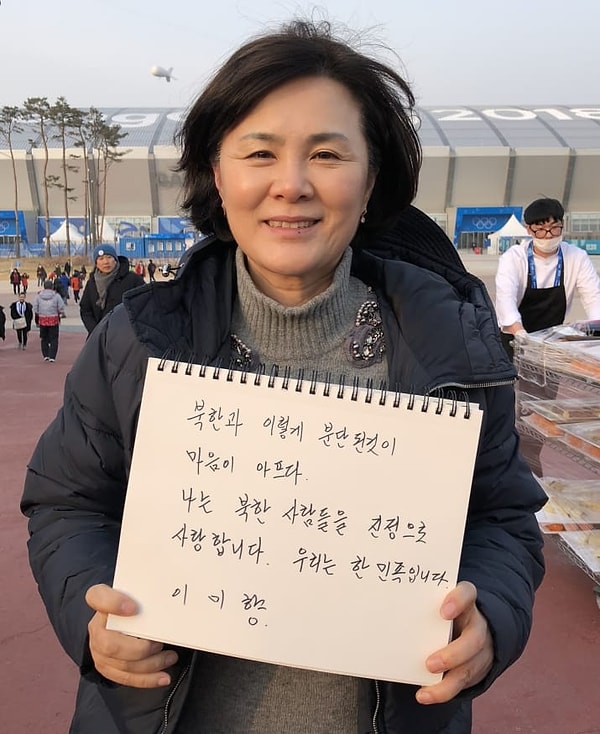 2018
북한과 이렇게 분단된것이
마음이 아프다.
나는 북한 사람들을 진정으로
사랑합니다. 우리는 한 민족입니다.
이 미 향.